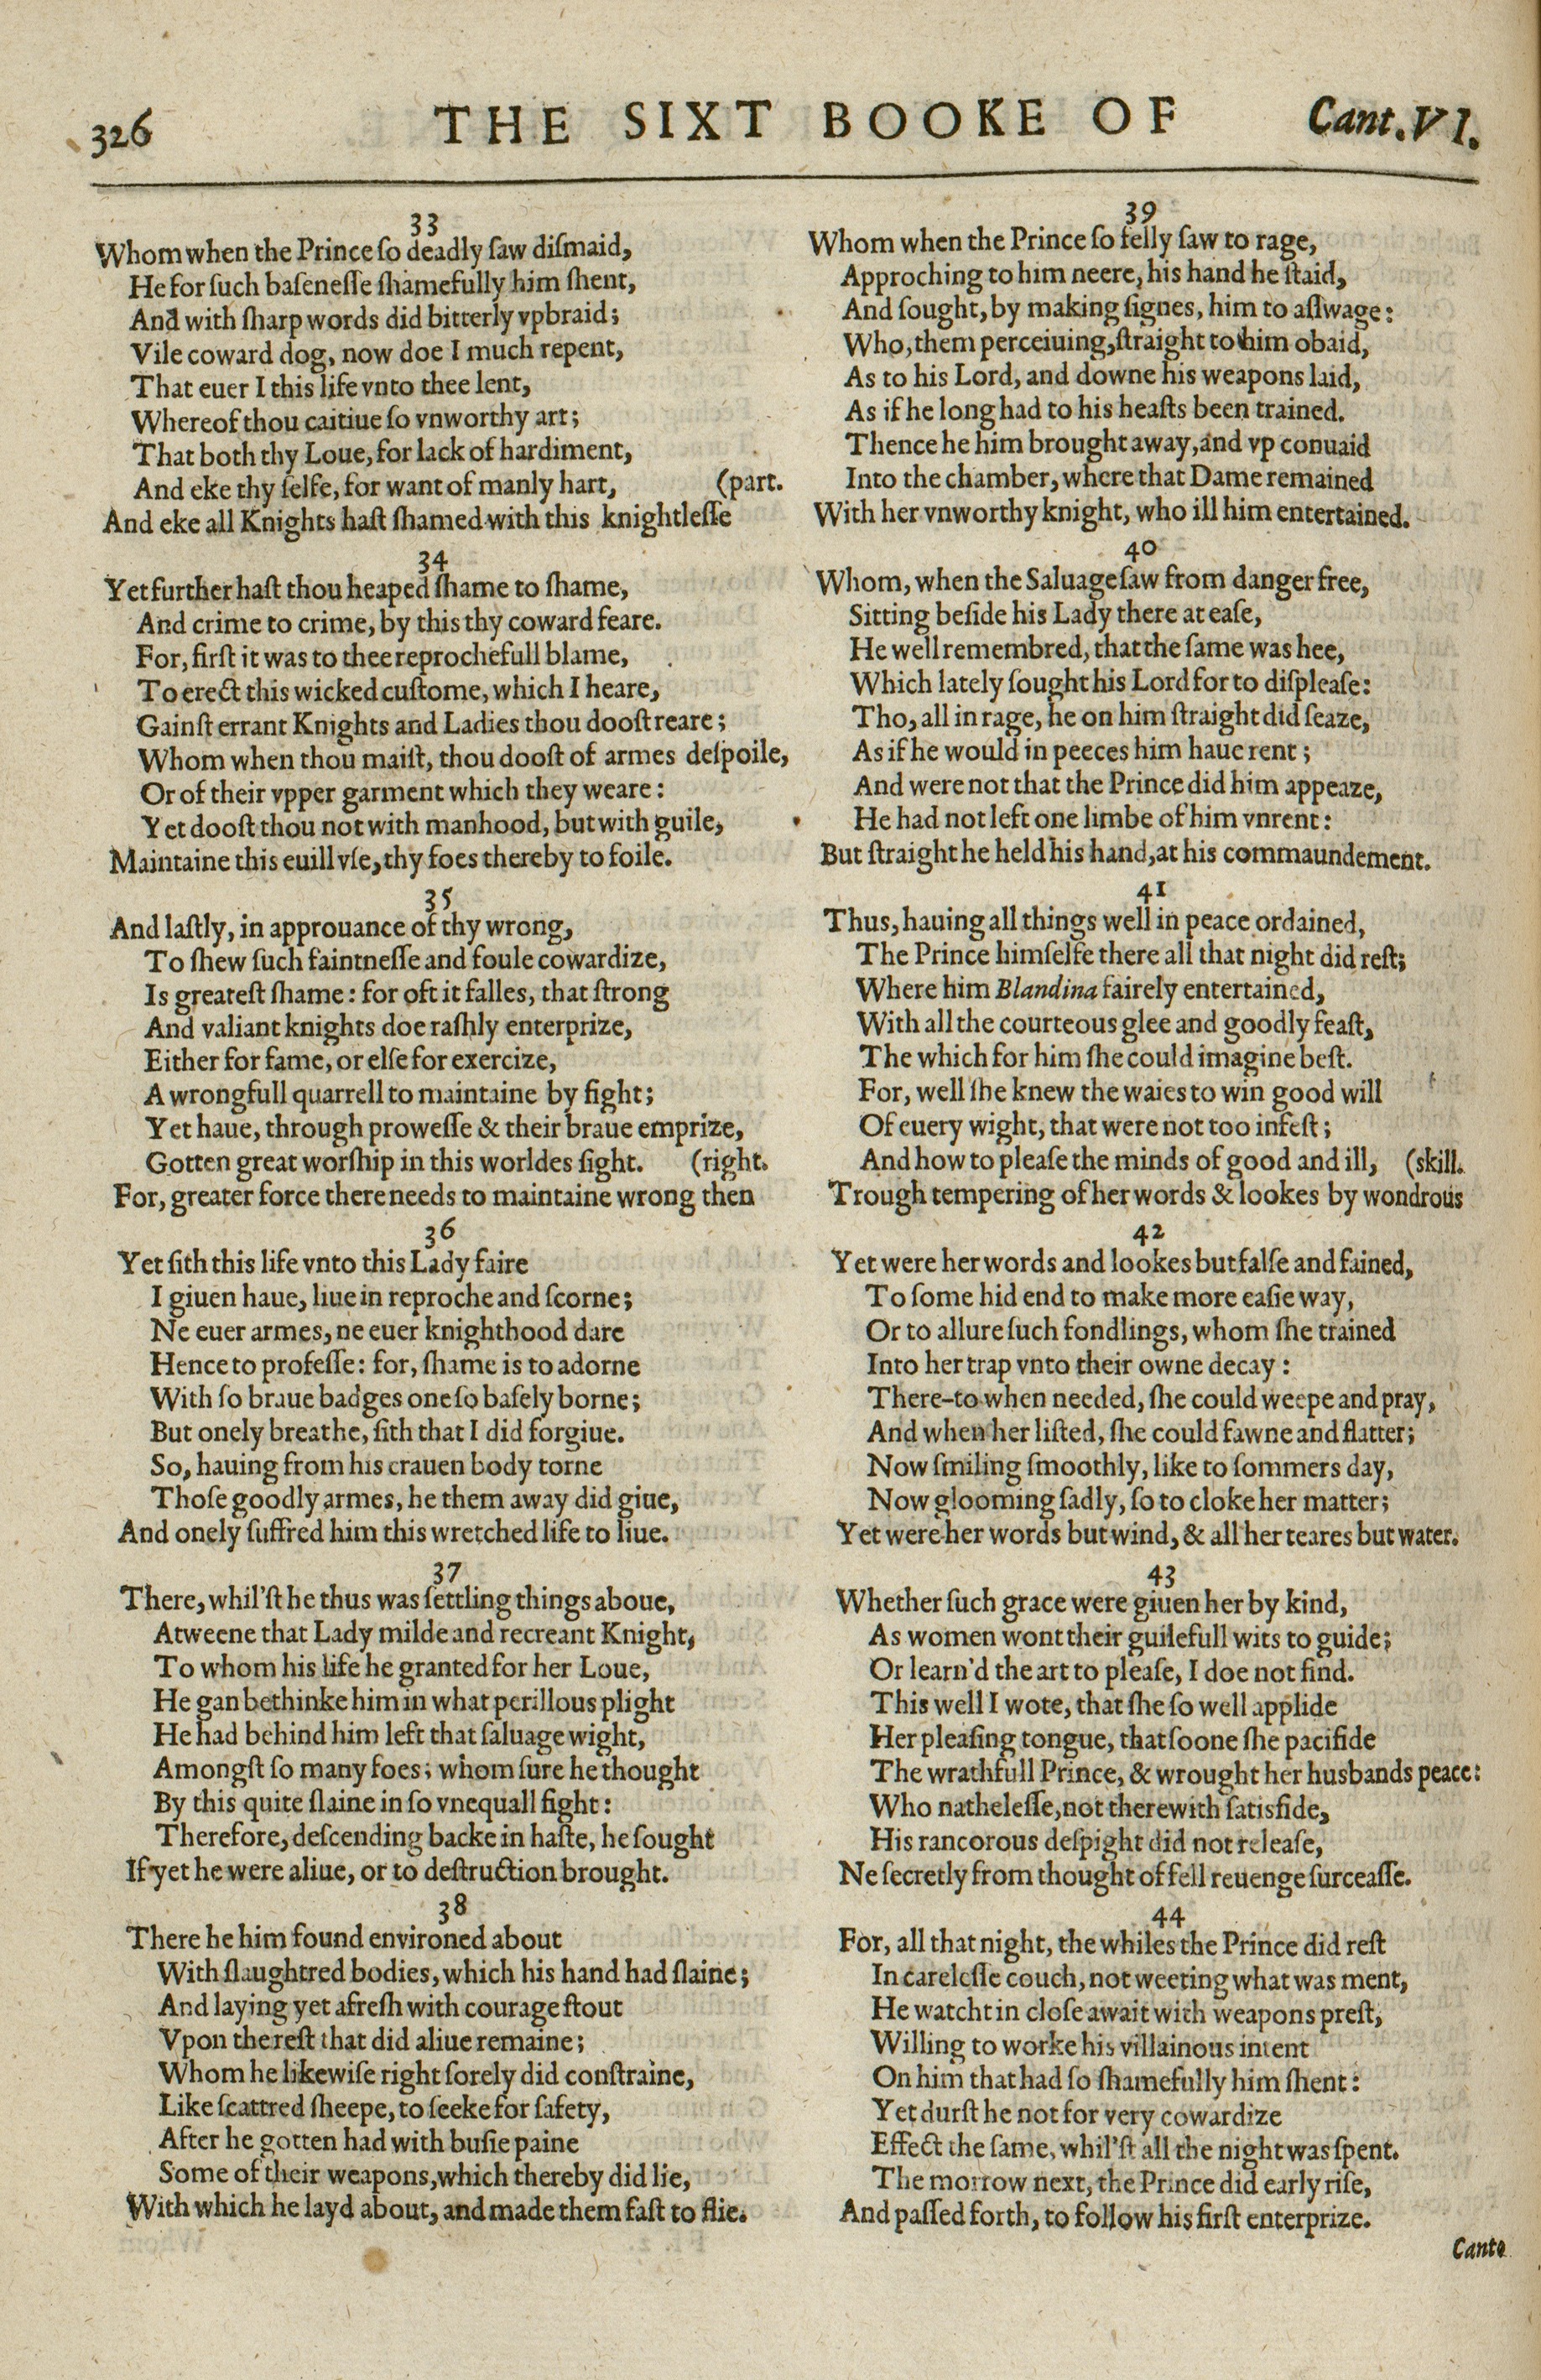 326 THE SIXT BOOKE OF Cant. VI.
33
Whom when the Prince ſo deadly ſaw diſmaid,
He for ſuch baſeneſſe ſhamefully him ſhent,
And with ſharp words did bitterly vpbraid;
Vile coward dog, now doe I much repent,
That euer I this life vnto thee lent,
Whereof thou caitiue ſo vnworthy art;
That both thy Loue, for lack of hardiment,
And eke thy ſelfe, for want of manly hart, (part.
And eke all Knights haſt ſhamed with this knightleſſe
34
Yet further haſt thou heaped ſhame to ſhame,
And crime to crime, by this thy coward feare.
For, firſt it was to thee reprochefull blame,
To erect this wicked cuſtome, which I heare,
Gainſt errant Knights and Ladies thou dooſt reare;
Whom when thou maiſt, thou dooſt of armes deſpoile,
Or of their vpper garment which they weare:
Yet dooſt thou not with manhood, but with guile,
Maintaine this euill vſe, thy foes thereby to foile.
35
And laſtly, in approuance of thy wrong,
To ſhew ſuch faintneſſe and foule cowardize,
Is greateſt ſhame: for oft it falles, that ſtrong
And valiant knights doe raſhly enterprize,
Either for fame, or elſe for exercize,
A wrongfull quarrell to maintaine by fight;
Yet haue, through proweſſe & their braue emprize,
Gotten great worſhip in this worldes ſight. (right.
For, greater force there needs to maintaine wrong then
36
Yet ſith this life vnto this Lady faire
I giuen haue, liue in reproche and ſcorne;
Ne euer armes, ne euer knighthood dare
Hence to profeſſe: for, ſhame is to adorne
With ſo braue badges one ſo baſely borne;
But onely breathe, ſith that I did forgiue.
So, hauing from his crauen body torne
Thoſe goodly armes, he them away did giue,
And onely ſuffred him this wretched life to liue.
37
There, whil'ſt he thus was ſettling things aboue,
Atweene that Lady milde and recreant Knight,
To whom his life he granted for her Loue,
He gan bethinke him in what perillous plight
He had behind him left that ſaluage wight,
Amongſt ſo many foes; whom ſure he thought
By this quite ſlaine in ſo vnequall fight:
Therefore, deſcending backe in haſte, he ſought
If yet he were aliue, or to deſtruction brought.
38
There he him found environed about
With ſlaughtred bodies, which his hand had ſlaine;
And laying yet afreſh with courage ſtout
Vpon the reſt that did aliue remaine;
Whom he likewiſe right ſorely did conſtraine,
Like ſcattred ſheepe, to ſeeke for ſafety,
After he gotten had with buſie paine
Some of their weapons, which thereby did lie,
With which he layd about, and made them faſt to flie.
39
Whom when the Prince ſo felly ſaw to rage,
Approching to him neere, his hand he ſtaid,
And ſought, by making ſignes, him to aſwage:
Who, them perceiuing, ſtraight to him obaid,
As to his Lord, and downe his weapons laid,
As if he long had to his heaſts been trained.
Thence he him brought away, and vp conuaid
Into the chamber, where that Dame remained
With her vnworthy knight, who ill him entertained.
40
Whom, when the Saluage ſaw from danger free,
Sitting beſide his Lady there at eaſe,
He well remembred, that the ſame was hee,
Which lately ſought his Lord for to diſpleaſe:
Tho, all in rage, he on him ſtraight did ſeaze,
As if he would in peeces him haue rent;
And were not that the Prince did him appeaze,
He had not left one limbe of him vnrent:
But ſtraight he held his hand, at his commaundement.
41
Thus, hauing all things well in peace ordained,
The Prince himſelfe there all that night did reſt;
Where him Blandina fairely entertained,
With all the courteous glee and goodly feaſt,
The which for him ſhe could imagine beſt.
For, well ſhe knew the waies to win good will
Of euery wight, that were not too infeſt;
And how to pleaſe the minds of good and ill, (skill.
Trough tempering of her words & lookes by wondrous
42
Yet were her words and lookes but falſe and fained,
To ſome hid end to make more eaſie way,
Or to allure ſuch fondlings, whom ſhe trained
Into her trap vnto their owne decay:
There-to when needed, ſhe could weepe and pray,
And when her liſted, ſhe could fawne and flatter;
Now ſmiling ſmoothly, like to ſommers day,
Now glooming ſadly, ſo to cloke her matter;
Yet were her words but wind, & all her teares but water.
43
Whether ſuch grace were giuen her by kind,
As women wont their guilefull wits to guide;
Or learn'd the art to pleaſe, I doe not find.
This well I wote, that ſhe ſo well applide
Her pleaſing tongue, that ſoone ſhe pacifide
The wrathfull Prince, & wrought her husbands peace:
Who natheleſſe, not therewith ſatisfide,
His rancorous deſpight did not releaſe,
Ne ſecretly from thought of fell reuenge ſurceaſſe.
44
For, all that night, the whiles the Prince did reſt
In careleſſe couch, not weeting what was ment,
He watcht in cloſe await with weapons preſt,
Willing to worke his villainous intent
On him that had ſo ſhamefully him ſhent:
Yet durſt he not for very cowardize
Effect the ſame, whil'ſt all the night was ſpent.
The morrow next, the Prince did early riſe,
And paſſed forth, to follow his firſt enterprize.
Canto